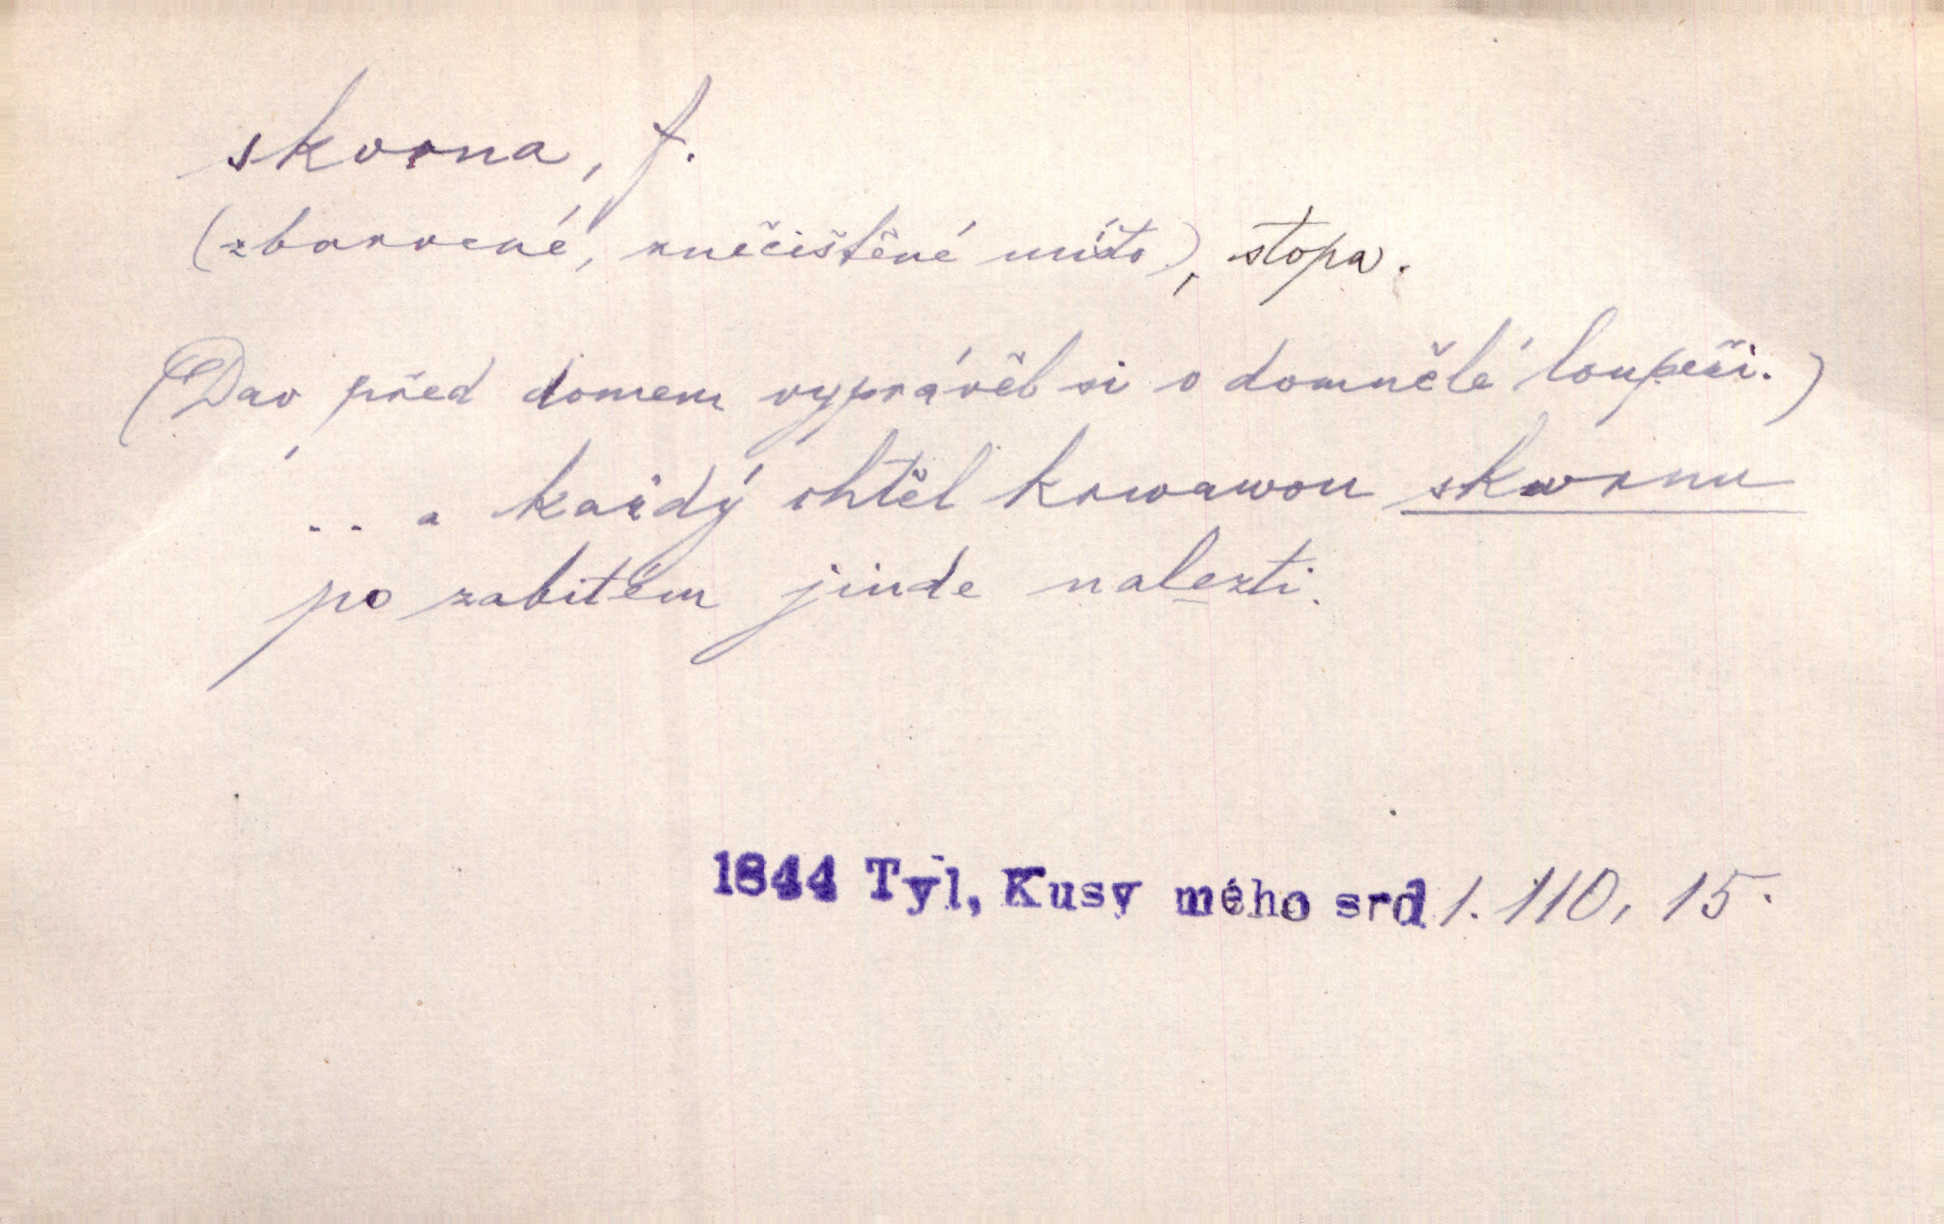 skvrna, f.
(zbarvené, znečištěné místo), stopa.
(Dav před domem vyprávěl si o domnělé loupeži.)
... a každý chtěl krwawou skwrnu
po zabitém jinde nalezti.
1844 Tyl, Kusy mého srd 1. 110, 15.